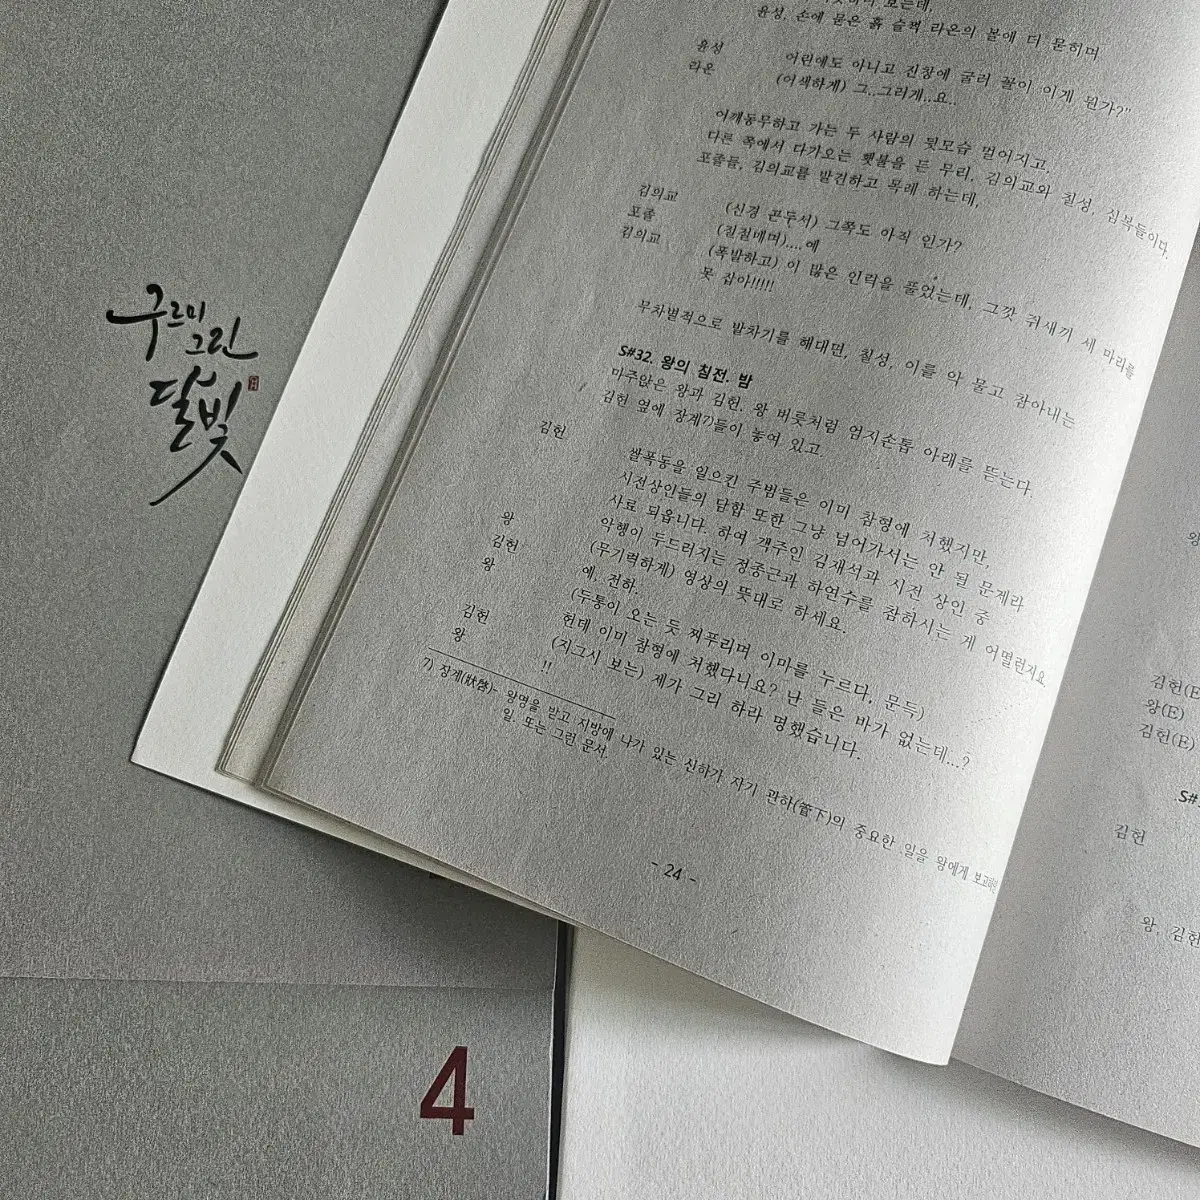 구르미
그린
달빛
4
보는데,
윤성, 손에 묻은 흙 슬쩍 라온의 볼에 더 묻히며
윤성 어린애도 아니고 진창에 굴러 꼴이 이게 뭔가?"
라온 (어색하게) 그..그러게..요..
어깨동무하고 가는 두 사람의 뒷모습 멀어지고,
다른 쪽에서 다가오는 횃불을 든 무리, 김의교와 칠성, 심복들이다.
포졸들, 김의교를 발견하고 목례 하는데,
김의교 (신경 곤두서) 그쪽도 아직 인가?
포졸 (쩔쩔매며)....예
김의교 (폭발하고) 이 많은 인력을 풀었는데, 그깟 쥐새끼 세 마리를
못 잡아!!!!!
무차별적으로 발차기를 해대면, 칠성, 이를 악 물고 참아내는
S#32. 왕의 침전. 밤
마주앉은 왕과 김헌. 왕 버릇처럼 엄지손톱 아래를 뜯는다.
김헌 옆에 장계7)들이 놓여 있고.
김헌 쌀폭동을 일으킨 주범들은 이미 참형에 처했지만,
시전상인들의 담합 또한 그냥 넘어가서는 안 될 문제라
사료 되옵니다. 하여 객주인 김재석과 시전 상인 중
악행이 두드러지는 정종근과 하연수를 참하시는 게 어떨런지요.
왕 (무기력하게) 영상의 뜻대로 하세요.
김헌 예, 전하.
왕 (두통이 오는 듯 찌푸리며 이마를 누르다, 문득)
헌데 이미 참형에 처했다니요? 난 들은 바가 없는데...?
김헌 (지그시 보는) 제가 그리 하라 명했습니다.
왕 !!
7) 장계(狀啓)- 왕명을 받고 지방에 나가 있는 신하가 자기 관하(管下)의 중요한 일을 왕에게 보고하던
일. 또는 그런 문서.
- 24 -
왕
김헌(E)
왕(E)
김헌(E)
S#
김헌
왕, 김헌